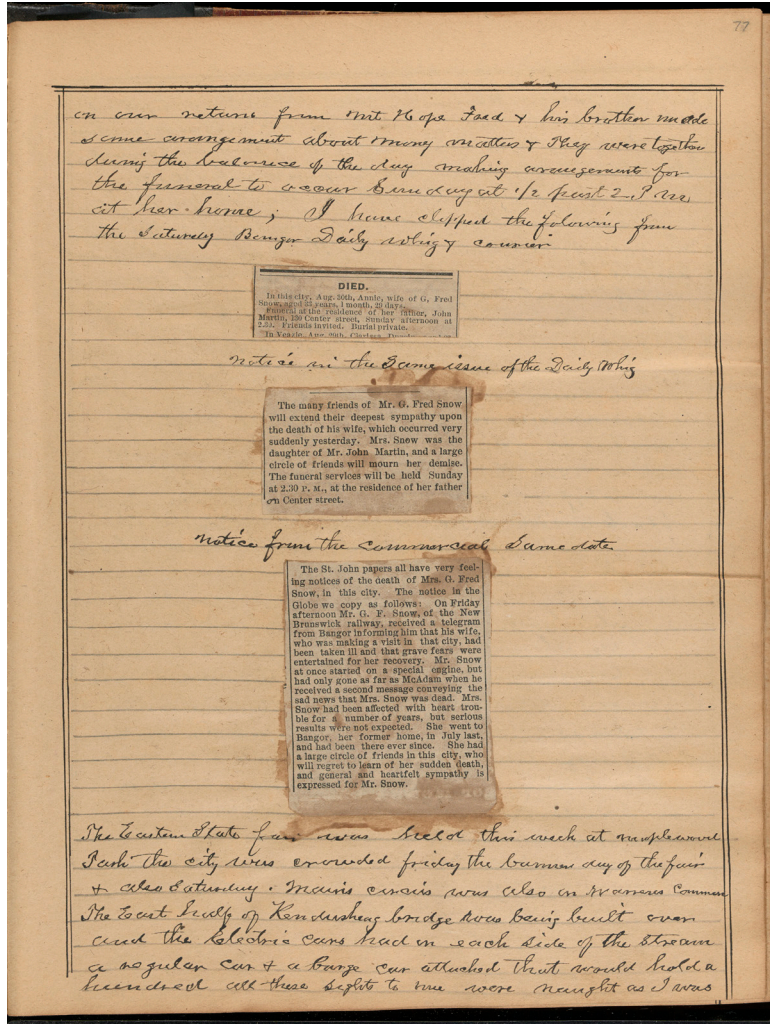 77
on our return from Mt Hope Fred & his brother made
some arangement about money matters & They were together
during the balance of the day making arangements for
the funeral to occur Sunday at 1/2 past 2. P M
at her home; I have clipped the folowing from
the Saturday Bangor Daily Whig & courier
DIED.
In this city, Aug. 30th, Annie, wife of G. Fred
Snow, aged 35 years, 1 month, 29 days.
Funeral at the residence of her father, John
Martin, 150 Center street, Sunday afternoon at
2.30. Friends invited. Burial private.
In Veazie, Aug. 29th, Clarissa
Notice in the Same issue of the Daily Whig
The many friends of Mr. G. Fred Snow
will extend their deepest sympathy upon
the death of his wife, which occurred very
suddenly yesterday. Mrs. Snow was the
daughter of Mr. John Martin, and a large
circle of friends will mourn her demise.
The funeral services will be held Sunday
at 2.30 P. M., at the residence of her father
on Center street.
Notice from the Commercial Same date
The St. John papers all have very feel-
ing notices of the death of Mrs. G. Fred
Snow, in this city. The notice in the
Globe we copy as follows: On Friday
afternoon Mr. G. F. Snow, of the New
Brunswick railway, received a telegram
from Bangor informing him that his wife,
who was making a visit in that city, had
been taken ill and that grave fears were
entertained for her recovery. Mr. Snow
at once started on a special engine, but
had only gone as far as McAdam when he
received a second message conveying the
sad news that Mrs. Snow was dead. Mrs.
Snow had been affected with heart trou-
ble for a number of years, but serious
results were not expected. She went to
Bangor, her former home, in July last,
and had been there ever since. She had
a large circle of friends in this city, who
will regret to learn of her sudden death,
and general and heartfelt sympathy is
expressed for Mr. Snow.
The Eastern State fair was held this week at maplewood
Park the city was crowded friday the banner day of the fair
& also Saturday. Main's circus was also on Warrens Common
The East half of Kenduskeag bridge was being built over
and the Electric cars had on each side of the stream
a regular car & a barge car attached that would hold a
hundred all these sights to me were naught as I was